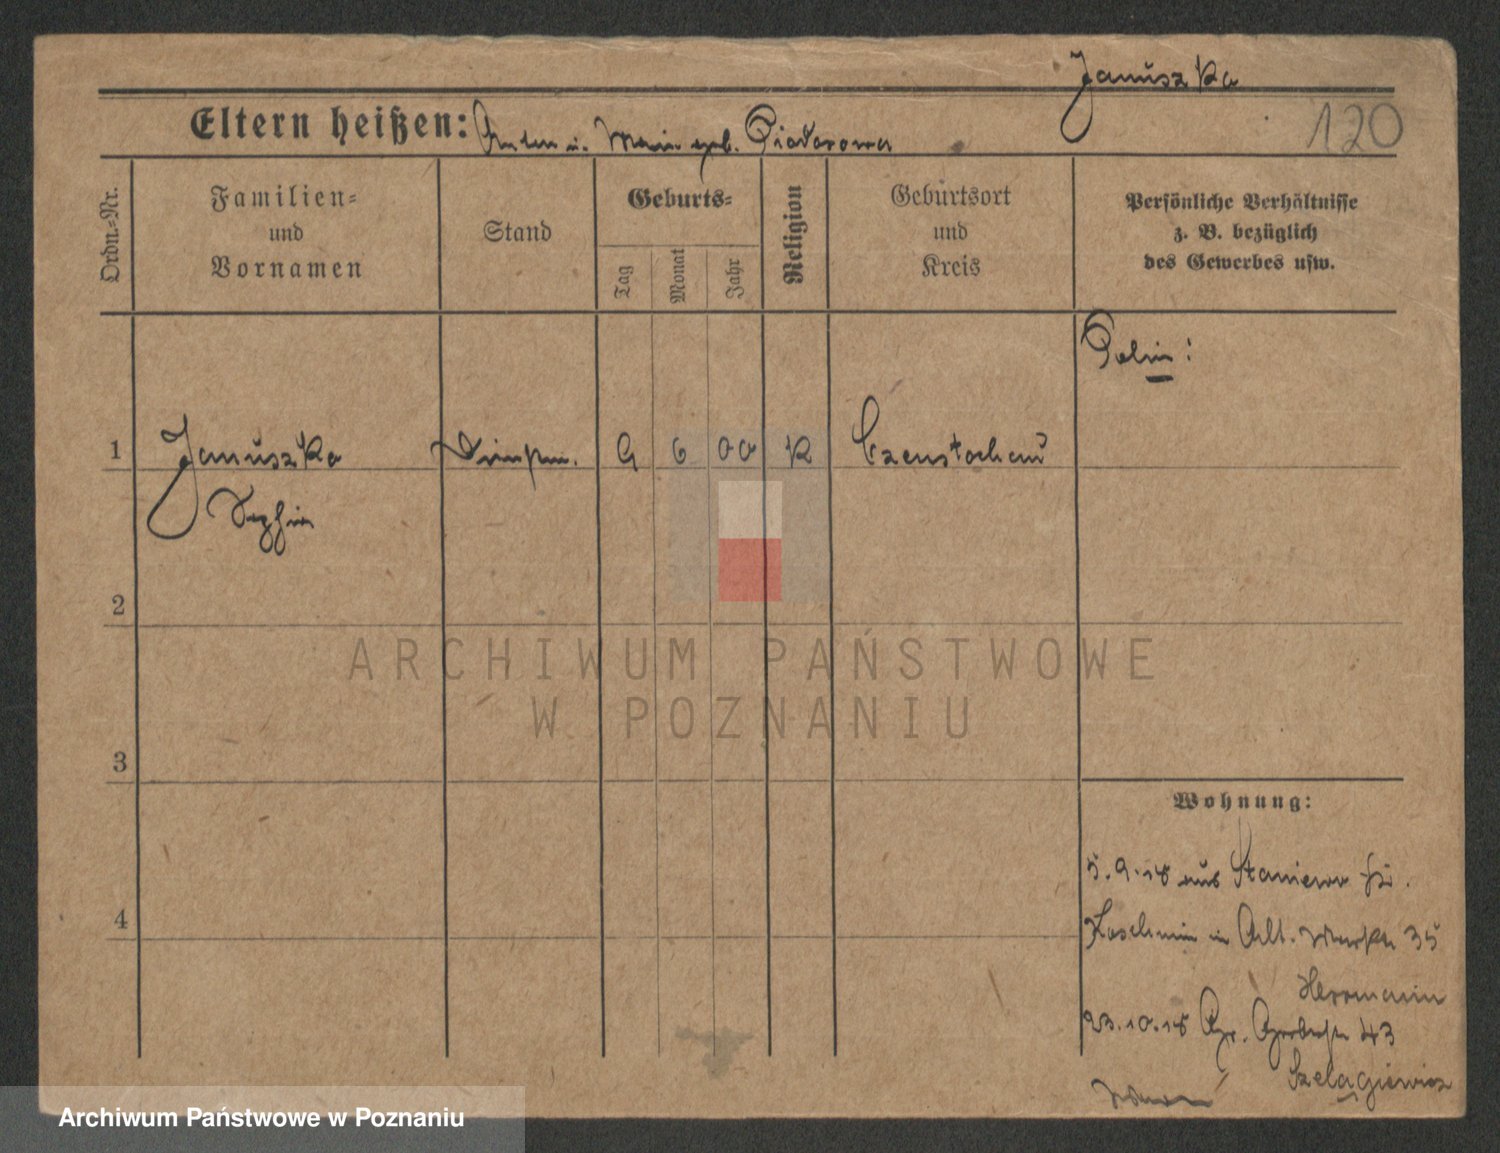 Januszka
120
Eltern heißen: Anton u. Marie geb.
Ordn.-Nr.
Familien-
und
Vornamen
Stand
Geburts-
Tag
Monat
Jahr
Religion
Geburtsort
und
Kreis
Persönliche Verhältnisse
z. B. bezüglich
des Gewerbes usw.
Polin:
1
Januszka
9 6 00 K Czenstochau
Sophie
2
ARCHIWUM PAŃSTWOWE
W POZNANIU
3
Wohnung:
5.9.18 aus Staniewo
Koschmin in Alt. Markt 35
4
Herrmann
23.10.18 Gr. Gerberstr 43
Szelągiewicz
Archiwum Państwowe w Poznaniu